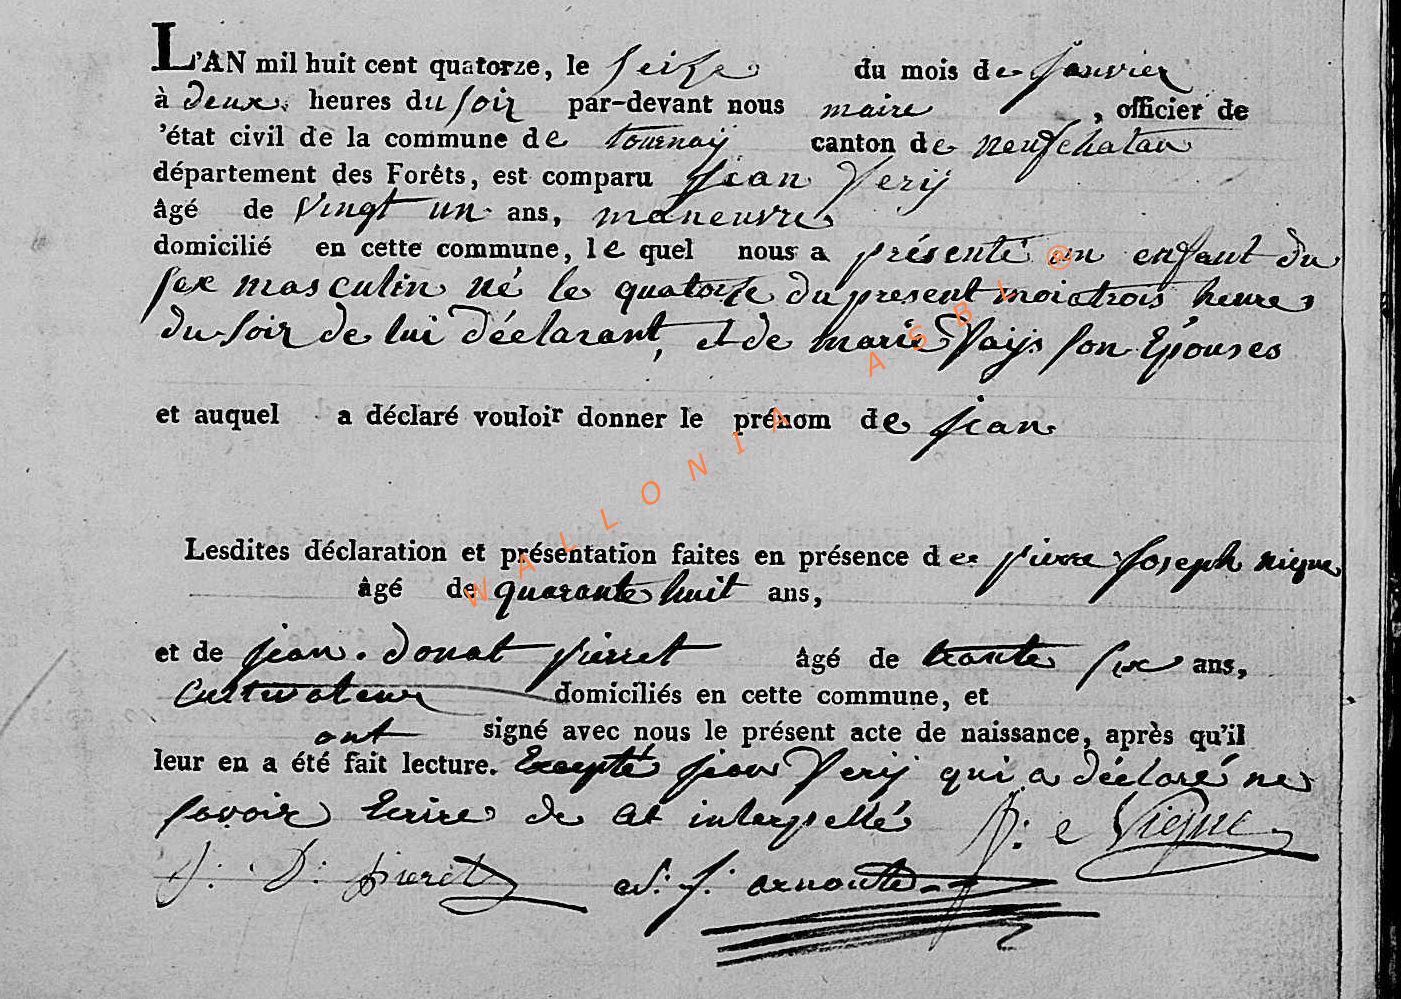 L'AN mil huit cent quatorze, le seize du mois de janvier
à deux heures du soir par-devant nous maire , officier de
'état civil de la commune de tournay canton de neufchatau
département des Forêts, est comparu jean Verij
âgé de vingt un ans, maneuvre
domicilié en cette commune, le quel nous a présenté un enfant du
sex masculin né le quatorze du present mois trois heures
du soir de lui déclarant, et de marie son Epouses
et auquel a déclaré vouloir donner le prénom de jean
Lesdites déclaration et présentation faites en présence de pierre joseph
âgé de quarante huit ans,
et de jean . donat pierret âgé de trante six ans,
Cultivateur domiciliés en cette commune, et
ont signé avec nous le présent acte de naissance, après qu'il
leur en a été fait lecture. Excepté jean Verij qui a déclaré ne
savoir Ecrire de ce interpellé
J: D: pieret
WALLONIA ASBL @